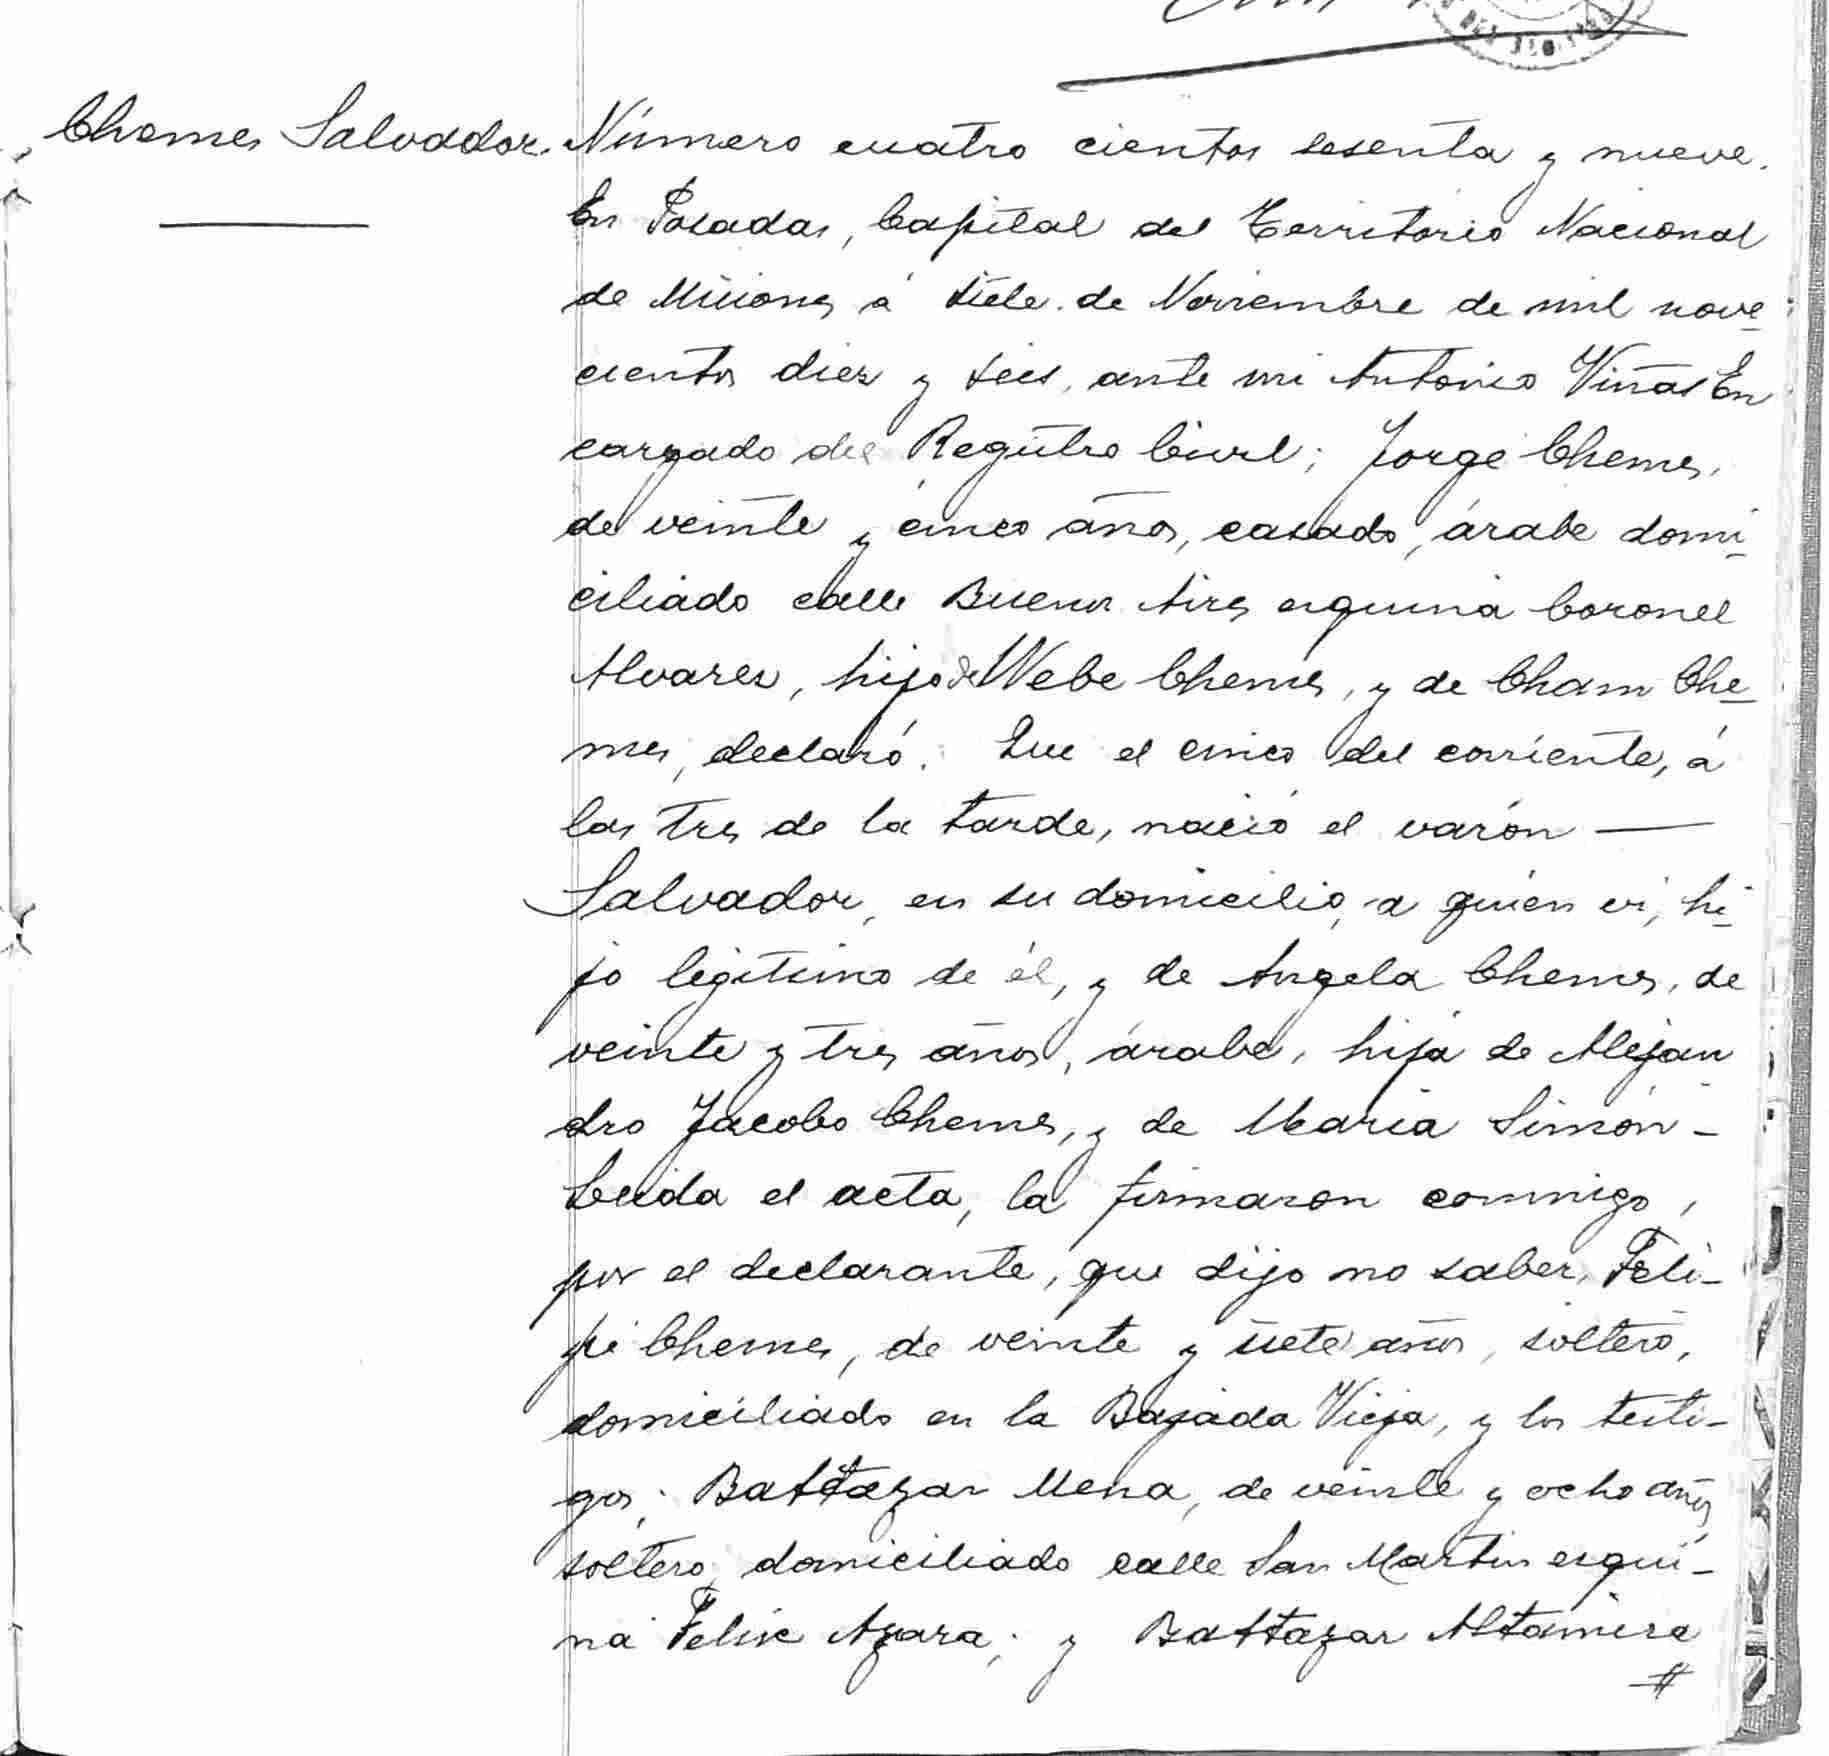 Chemes Salvador.
Número cuatro cientos sesenta y nueve.
En Posadas, Capital del Territorio Nacional
de Misiones á siete de Noviembre de mil nove
cientos diez y seis, ante mi Antonio Viñas En
cargado del Registro Civil; Jorge Chemes,
de veinte y cinco años, casado, árabe domi
ciliado calle Buenos Aires esquina Coronel
Alvarez, hijo de Webe Chemes, y de Cham Che
mes, declaró: Que el cinco del corriente, á
las tres de la tarde, nació el varón —
Salvador, en su domicilio, a quien vi, hi
jo legitimo de él, y de Angela Chemes, de
veinte y tres años, árabe, hija de Alejan
dro Jacobo Chemes, y de Maria Simón -
Leida el acta, la firmaron conmigo,
por el declarante, que dijo no saber, Feli-
pe Chemes, de veinte y siete años, soltero,
domiciliado en la Bajada Vieja, y los testi-
gos: Baltazar Mena, de veinte y ocho años
soltero, domiciliado calle San Martin esqui-
na Felix Azara; y Baltazar Altamira
#